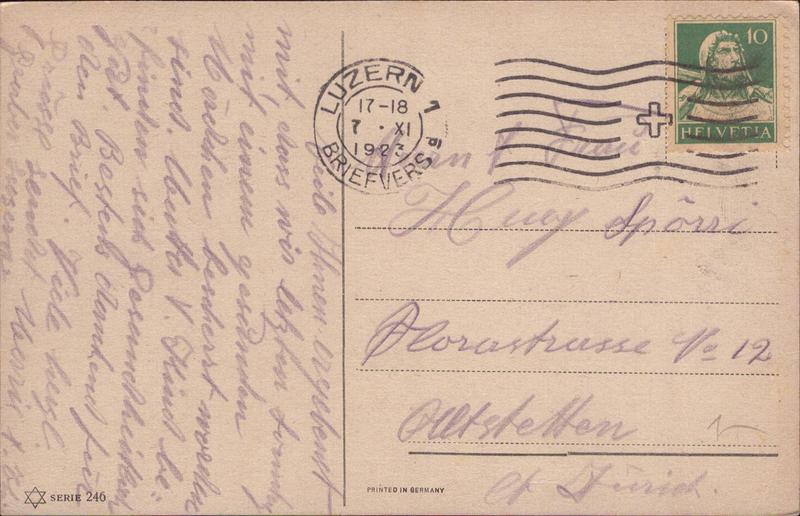 Teile Ihnen ergebenst
mit dass wir letzten Sonntag
mit einem gesunden
Mädchen beschert worden
sind. Mutter & Kind be-
finden sich Gesundheitlich
gut. Bestens dankend für
den Brief. Viele herzl.
Grüsse sendet
LUZERN 1
17-18
7 · XI
1923
BRIEFVERS
10
HELVETIA
Herrn & Frau
Hug Spörri
Florastrasse No 12
Altstetten
b/ Zürich.
SERIE 246
PRINTED IN GERMANY